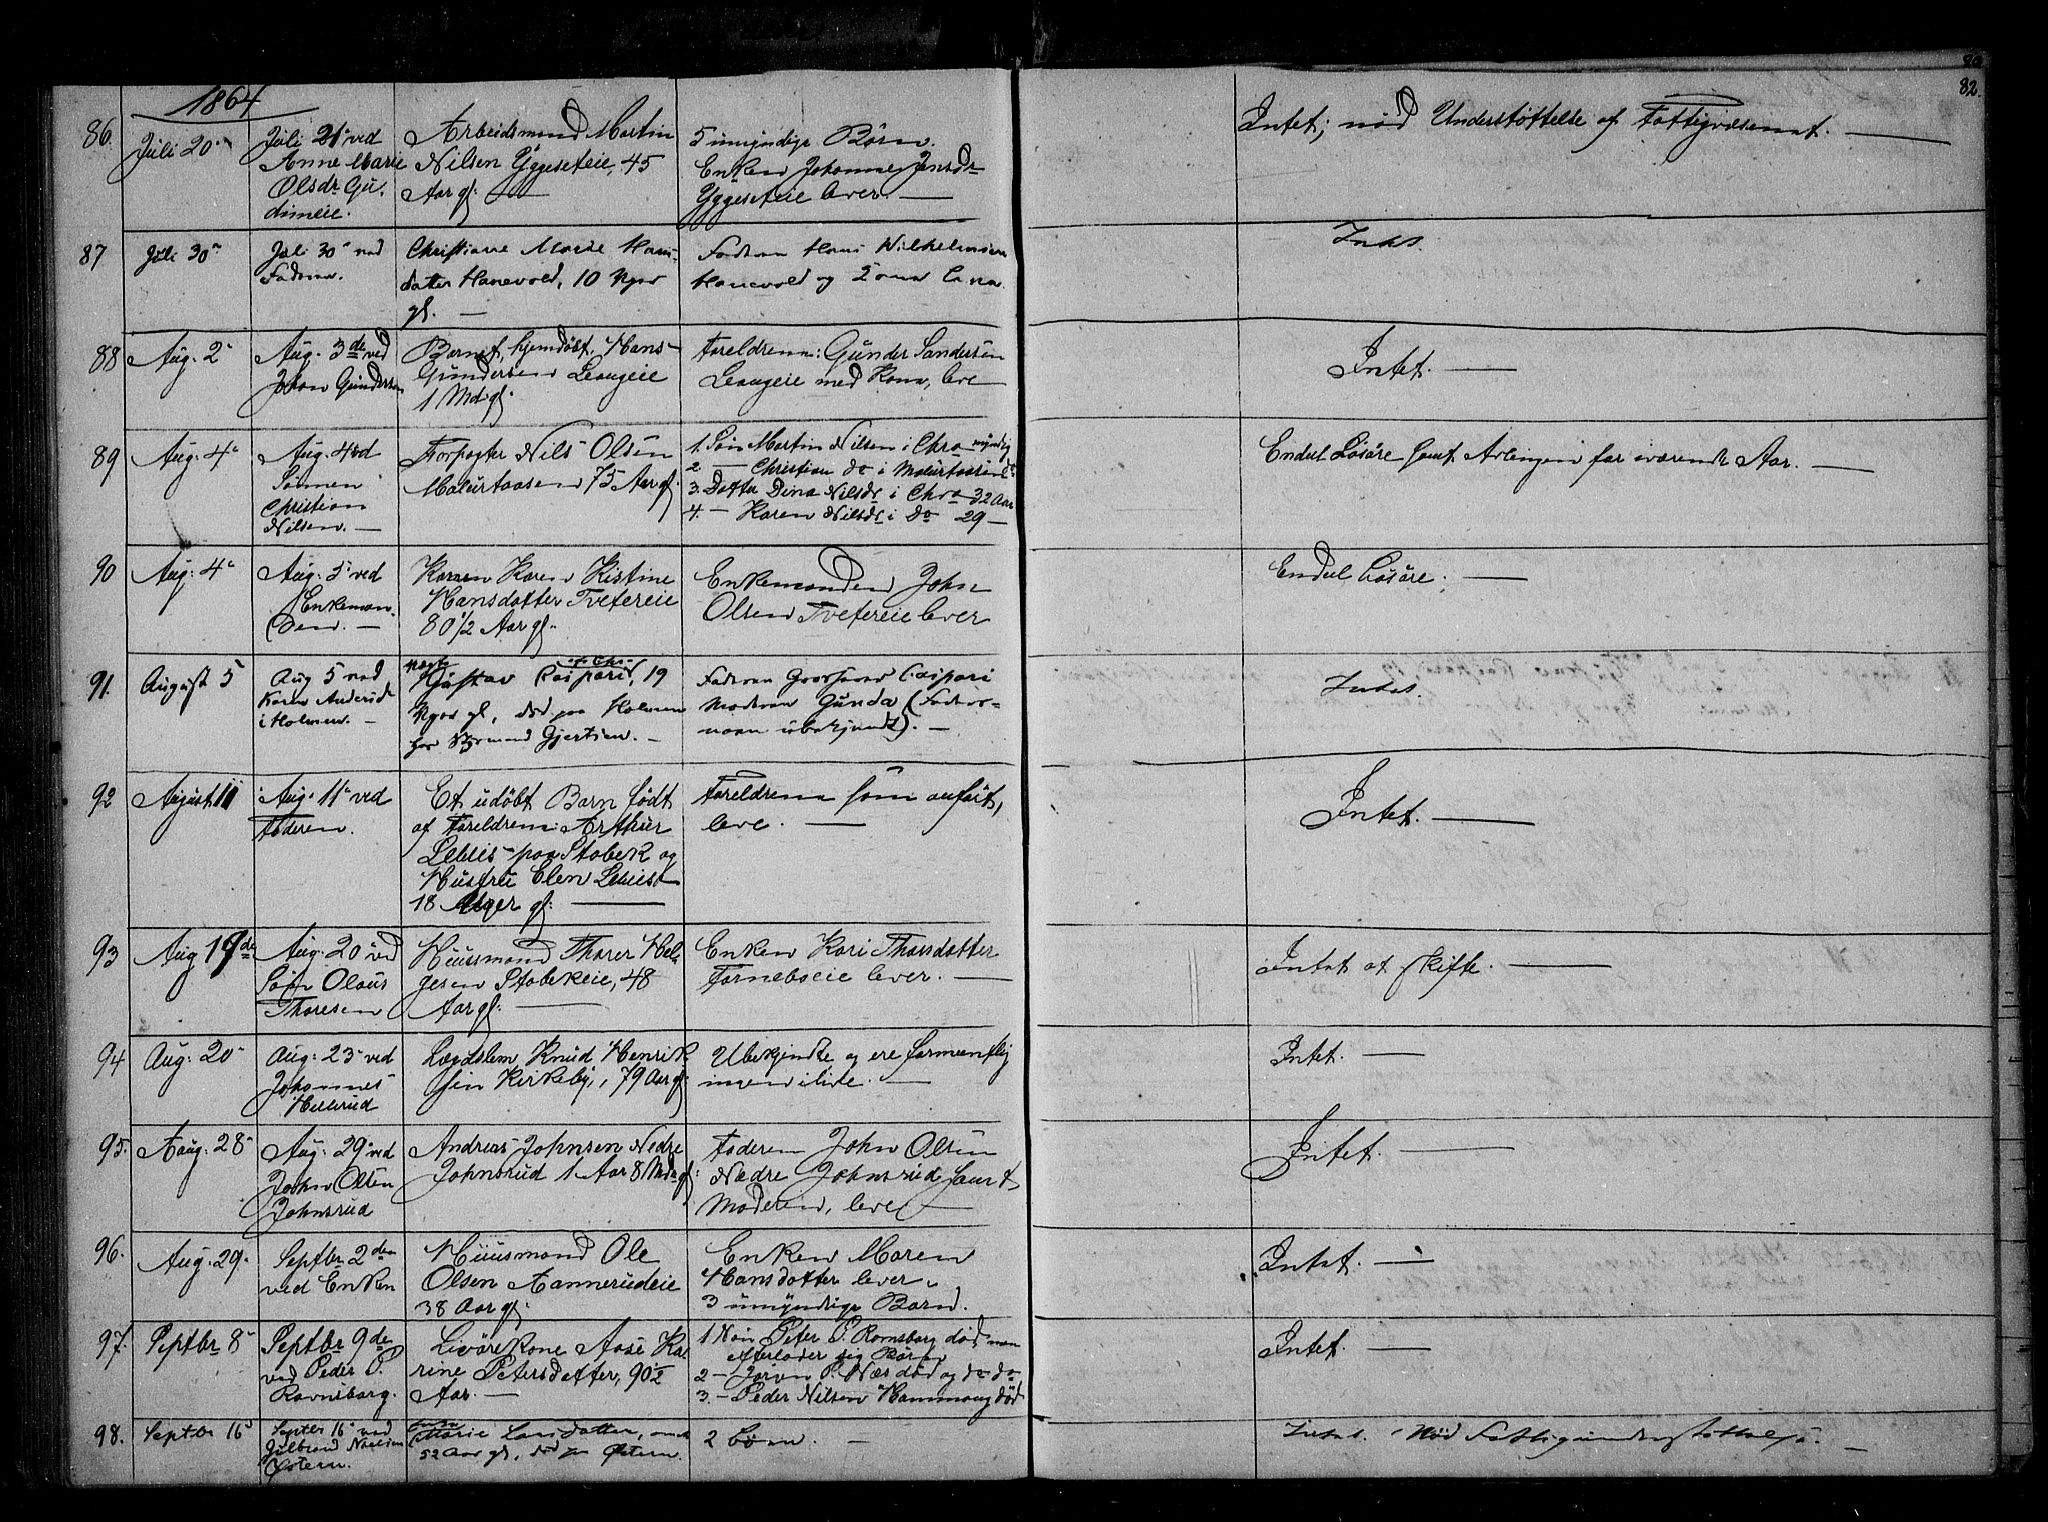 82.
1864
86.
Juli 20
Juli 21 ved
Anne Marie
Olsdr Gu-
dimeie.
Arbeidsmand Martin
Nilsen Yggeseteie, 45
Aar gl.
5 umyndige Børn.
Enken Johanne Jensdr
Yggeseteie lever. —
Intet; nød Understøttelse af Fattigvæsenet. —
87
Juli 30
Juli 30 ved
Faderen.
Christiane Marie Hans-
datter Hanevold, 10 Uger
gl. —
Faderen Hans Wilhelmsen
Hanevold og
Intet.
88
Aug. 2
Aug. 3de ved
Johan Gundersen
Barnet, hjemdøbt, Hans
Gundersen Leangeie
1 Md. gl.
Foreldrene: Gunder Sandersen
Leangeie med Kone, leve
Intet. —
89
Aug. 4
Aug. 4 ved
Sønnen
Christian
Nilsen. —
Forpagter Nils Olsen
75 Aar gl.
1. Søn Martin Nilsen i Chra myndig
2 — Christian do i
3. Datter Dina Nilsdr i Chra 32 Aar
4. — Karen Nilsdr i do 29 —
Endel Løsøre samt Avlingen for nærværende Aar. —
90
Aug: 4
Aug. 5 ved
Enkeman-
den. —
Konen Karen Kistine
Hansdatter Tvetereie
80 1/2 Aar gl.
Enkemanden John
Olsen Tvetereie lever
Endel Løsøre. —
91.
August 5
Aug 5 ved
Karen Andersdr
i Holmen. —
Gustav Caspari, 19
Uger gl, død paa Holmen
hos Gjertsen. —
Faderen Caspari
Moderen Gunda (Fader-
navn ubekjendt). —
Intet.
92
August 11
Aug. 11 ved
Faderen.
Et udøbt Barn født
af Foreldrene: Arthur
paa Stabek og
Hustru Elen
18 Uger gl. —
Foreldrene som anført,
leve. —
Intet. —
93
Aug 19de
Aug. 20 ved
Søn Olaus
Thoresen
Huusmand Thorer Hel-
gesen Stabekeie, 48
Aar gl. —
Enken Kari Thorsdatter
Forneboeie lever. —
Intet at skifte. —
94
Aug: 20
Aug: 23 ved
Johannes
Hellerud
Lægdslem Knud Henrik
sen Kirkeby, 79 Aar gl.
Ubekjendte og ere formentlig
ingen ilive. —
Intet. —
95.
Aaug. 28
Aug: 29 ved
John Olsen
Johnsrud
Andreas Johnsen Nedre
Johnsrud 1 Aar 8 Mdr gl.
Faderen John Olsen
Nedre Johnsrud samt
Moderen, leve —
Intet. —
96.
Aug. 29.
Septbr 2den
ved Enken
Huusmand Ole
Olsen Aannerudeie
38 Aar gl.
Enken Maren
Hansdatter lever.
3 umyndige Børn.
Intet. —
97.
Septbr 8
Septbr 9de
ved Peder P.
Ravnsborg.
Livørekone Aase Ka-
rine Petersdatter, 90 1/2
Aar. —
1 Søn Peter P. Ramsborg død, men
efterlader sig Børn
2 — Jørgen P. Næs død og do do
3. — Peder Nilsen Hammang død
Intet. —
98.
Septbr 16
Septbr 16 ved
Gulbrand
Østern.
Marie Larsdatter,
52 Aar gl, død paa Østern.
2 Børn. —
Intet. Nød Fattigunderstøttelse. —